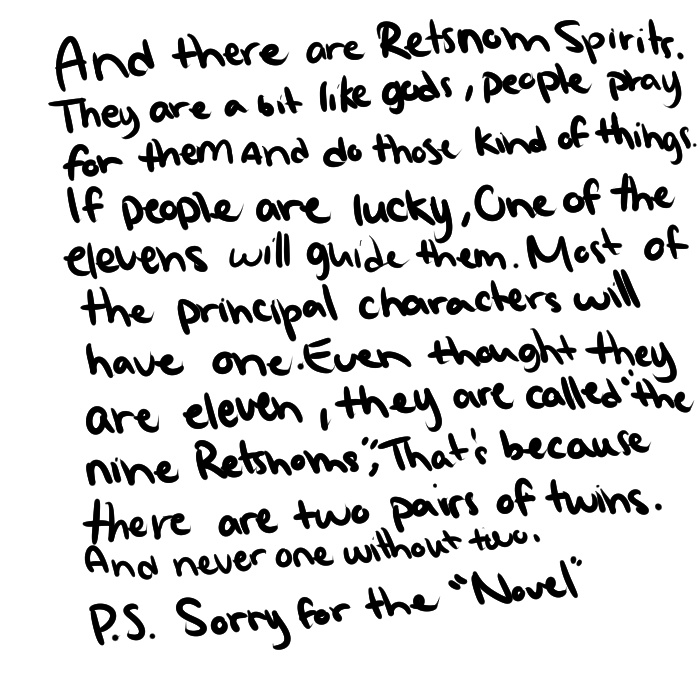 And there are Retsnom Spirits.
They are a bit like gods, people pray
for them And do those kind of things.
If people are lucky, One of the
elevens will guide them. Most of
the principal characters will
have one. Even thought they
are eleven, they are called "the
nine Retsnoms", That's because
there are two pairs of twins.
And never one without two.
P.S. Sorry for the "Novel"